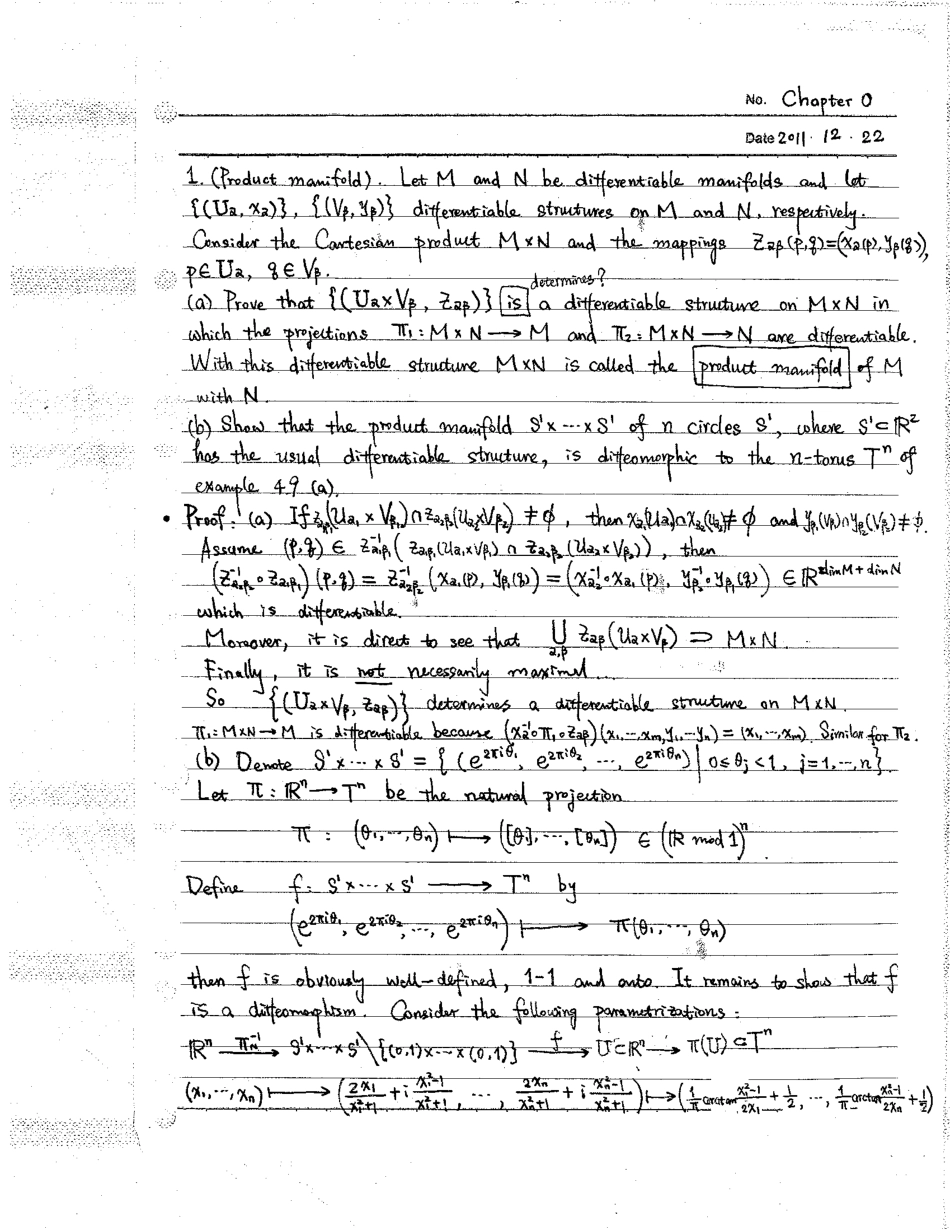 No. Chapter 0
Date 2011 · 12 · 22
1. (Product manifold). Let M and N be differentiable manifolds and let
{(Uα, xα)}, {(Vβ, yβ)} differentiable structures on M and N, respectively.
Consider the Cartesian product M×N and the mappings zαβ(p,q)=(xα(p), yβ(q)),
p∈Uα, q∈Vβ.
determines?
(a) Prove that {(Uα×Vβ, zαβ)} is a differentiable structure on M×N in
which the projections π₁: M×N → M and π₂: M×N → N are differentiable.
With this differentiable structure M×N is called the product manifold of M
with N.
(b) Show that the product manifold S¹×⋯×S¹ of n circles S¹, where S¹⊂ℝ²
has the usual differentiable structure, is diffeomorphic to the n-torus Tⁿ of
example 4.9 (a).
• Proof: (a) If zα₁β₁(Uα₁×Vβ₁)∩zα₂β₂(Uα₂×Vβ₂) ≠ ∅, then xα₁(Uα₁)∩xα₂(Uα₂)≠∅ and yβ₁(Vβ₁)∩yβ₂(Vβ₂)≠∅.
Assume (p,q) ∈ zα₁β₁⁻¹(zα₁β₁(Uα₁×Vβ₁) ∩ zα₂β₂(Uα₂×Vβ₂)), then
(zα₂β₂⁻¹∘zα₁β₁)(p,q) = zα₂β₂⁻¹(xα₁(p), yβ₁(q)) = (xα₂⁻¹∘xα₁(p), yβ₂⁻¹∘yβ₁(q)) ∈ ℝ^{dim M + dim N}
which is differentiable.
Moreover, it is direct to see that ⋃α,β zαβ(Uα×Vβ) ⊃ M×N.
Finally, it is not necessarily maximal.
So {(Uα×Vβ, zαβ)} determines a differentiable structure on M×N.
π₁: M×N→M is differentiable because (xα⁻¹∘π₁∘zαβ)(x₁,⋯,xm,y₁,⋯yn) = (x₁,⋯,xm). Similar for π₂.
(b) Denote S¹×⋯×S¹ = {(e^{2πiθ₁}, e^{2πiθ₂}, ⋯, e^{2πiθn}) | 0≤θj<1, j=1,⋯,n}.
Let π: ℝⁿ→Tⁿ be the natural projection
π : (θ₁,⋯,θn) ↦ ([θ₁],⋯,[θn]) ∈ (ℝ mod 1)ⁿ
Define f: S¹×⋯×S¹ → Tⁿ by
(e^{2πiθ₁}, e^{2πiθ₂}, ⋯, e^{2πiθn}) ↦ π(θ₁,⋯,θn)
then f is obviously well-defined, 1-1 and onto. It remains to show that f
is a diffeomorphism. Consider the following parametrizations:
ℝⁿ —π_N⁻¹→ S¹×⋯×S¹\{(0,1)×⋯×(0,1)} —f→ U⊂ℝⁿ → π(U)⊂Tⁿ
(x₁,⋯,xn) ↦ (2x₁/(x₁²+1) + i (x₁²−1)/(x₁²+1), ⋯, 2xn/(xn²+1) + i (xn²−1)/(xn²+1)) ↦ (1/π arctan (x₁²−1)/(2x₁) + 1/2, ⋯, 1/π arctan (xn²−1)/(2xn) + 1/2)